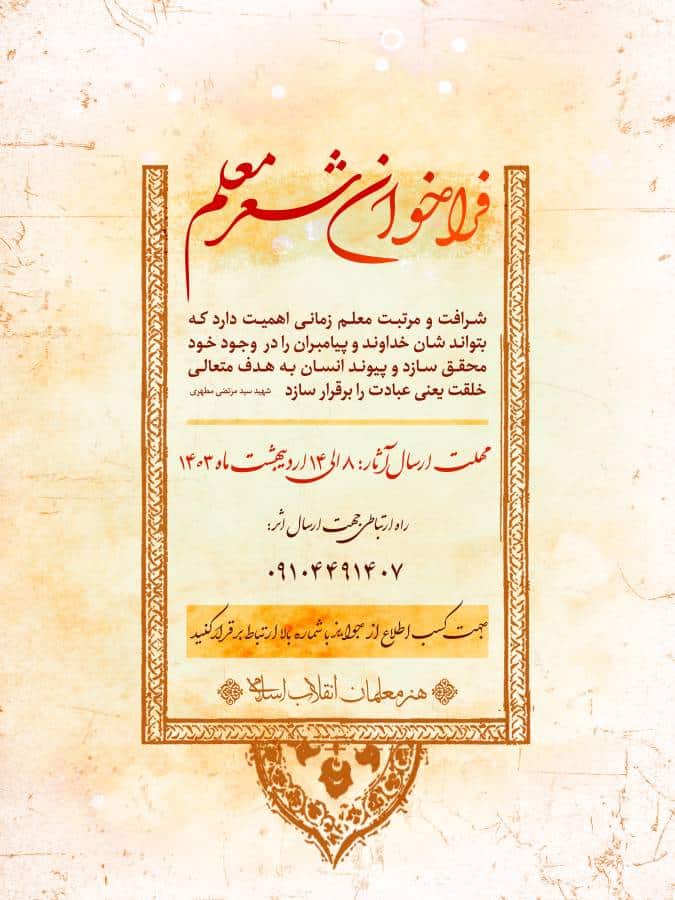 فراخوان شعر معلم
شرافت و مرتبت معلم زمانی اهمیت دارد که
بتواند شان خداوند و پیامبران را در وجود خود
محقق سازد و پیوند انسان به هدف متعالی
خلقت یعنی عبادت را برقرار سازد شهید سید مرتضی مطهری
مهلت ارسال آثار: ۸ الی ۱۴ اردیبهشت ماه ۱۴۰۳
راه ارتباطی جهت ارسال اثر:
۰۹۱۰۴۴۹۱۴۰۷
جهت کسب اطلاع از جوایز با شماره بالا ارتباط برقرار کنید
هنر معلمان انقلاب اسلامی